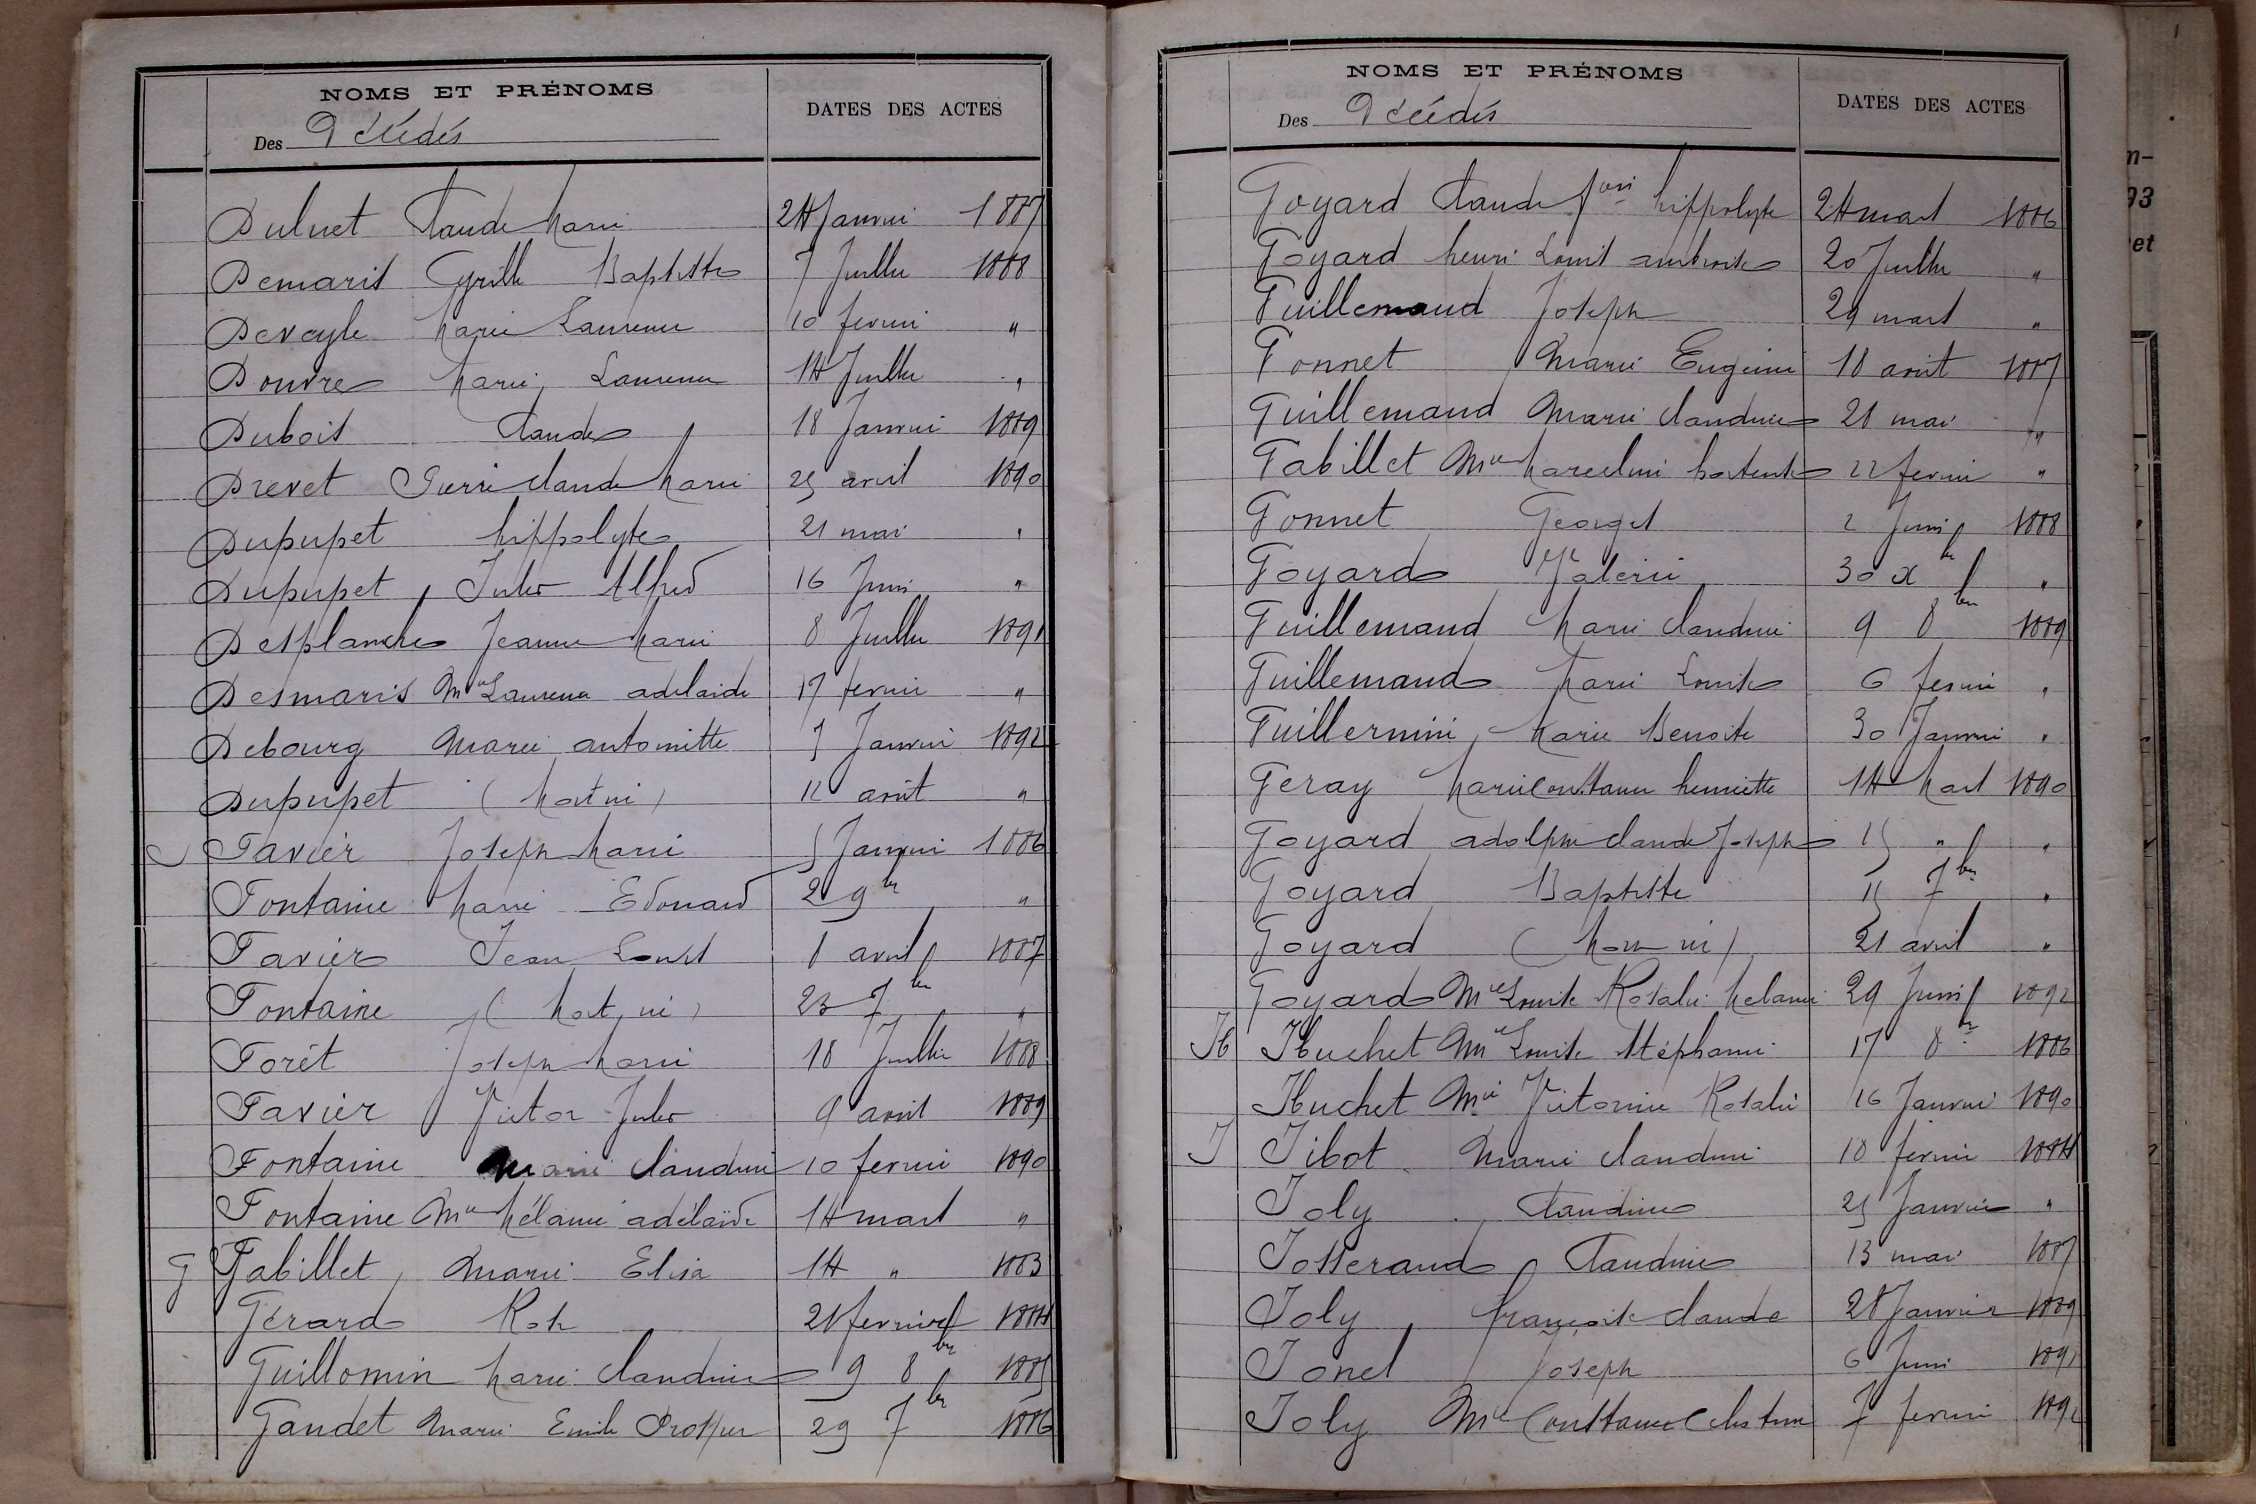 NOMS ET PRÉNOMS
Des Décédés
DATES DES ACTES
Dulnet Claude Marie 24 Janvier 1887
Demaris Cyrille Baptiste 7 Juillet 1888
Deveyle Marie Laurence 10 fevrier "
Douvre Marie Laurence 14 Juillet "
Dubois Claude 18 Janvier 1889
Drevet Pierre Claude Marie 25 avril 1890
Dupupet hippolyte 21 mai "
Dupupet Jules Alfred 16 Juin "
Desplanche Jeanne Marie 8 Juillet 1891
Desmaris Mie Laurence adelaide 17 fevrier "
Debourg Marie antoinette 7 Janvier 1892
Dupupet (Mort né) 12 août "
Favier Joseph Marie 5 Janvier 1886
Fontaine Marie Edouard 2 9br "
Favier Jean Louis 8 avril 1887
Fontaine (Mort né) 23 7br "
Forêt Joseph Marie 18 Juillet 1888
Favier Victor Jules 9 avril 1889
Fontaine Marie Claudine 10 fevrier 1890
Fontaine Mie Mélanie adélaïde 14 mars "
G Gabillet Marie Elisa 14 " 1883
Gérard Roch 28 fevrier 1884
Guillomin Marie Claudine 9 8bre 1885
Gaudet Marie Emile Prosper 29 7bre 1886
NOMS ET PRÉNOMS
Des Décédés
DATES DES ACTES
Goyard Claude fçois hippolyte 24 mars 1886
Goyard henri Louis ambroise 20 Juillet "
Guillemaud Joseph 29 mars "
Gonnet Marie Eugenie 18 août 1887
Guillemaud Marie Claudine 28 mai "
Gabillet Mie Marceline hortense 22 fevrier "
Gonnet Georges 2 Juin 1888
Goyard Valerie 30 Xbre "
Guillemaud Marie Claudine 9 8bre 1889
Guillemaud Marie Louise 6 fevrier "
Guillermin Marie Benoite 30 Janvier "
Geray Marie Constance henriette 14 Mars 1890
Goyard adolphe Claude Joseph 15 " "
Goyard Baptiste 15 7bre "
Goyard (Mort né) 21 avril "
Goyard Mie Louise Rosalie Melanie 29 Juin 1892
H Huchet Mie Louise Stéphanie 17 8bre 1886
Huchet Mie Victorine Rosalie 16 Janvier 1890
J Jibot Marie Claudine 18 fevrier 1884
Joly Claudine 25 Janvier "
Josserand Claudine 13 mai 1887
Joly françoise Claude 28 Janvier 1889
Jonel Joseph 6 Juin 1891
Joly Mie Constance Celestine 7 fevrier 1892